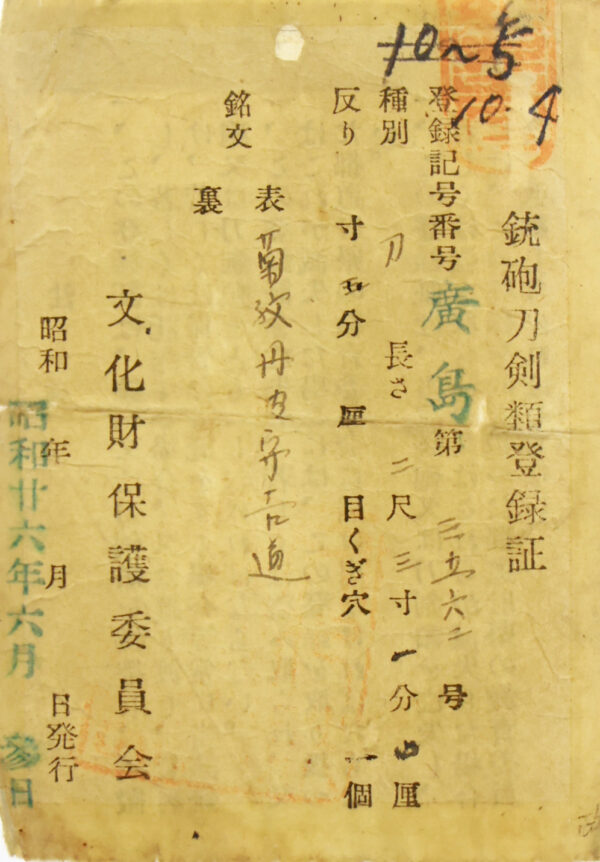 10.4
銃砲刀剣類登録証
登録記号番号 廣島 第 三五六二 号
種別 刀 長さ 二尺三寸一分 厘
反り 寸五分 厘 目くぎ穴 一個
銘文 表 菊紋丹波守吉道
裏
文化財保護委員会
昭和 年 月 日発行
昭和廿六年六月 参日